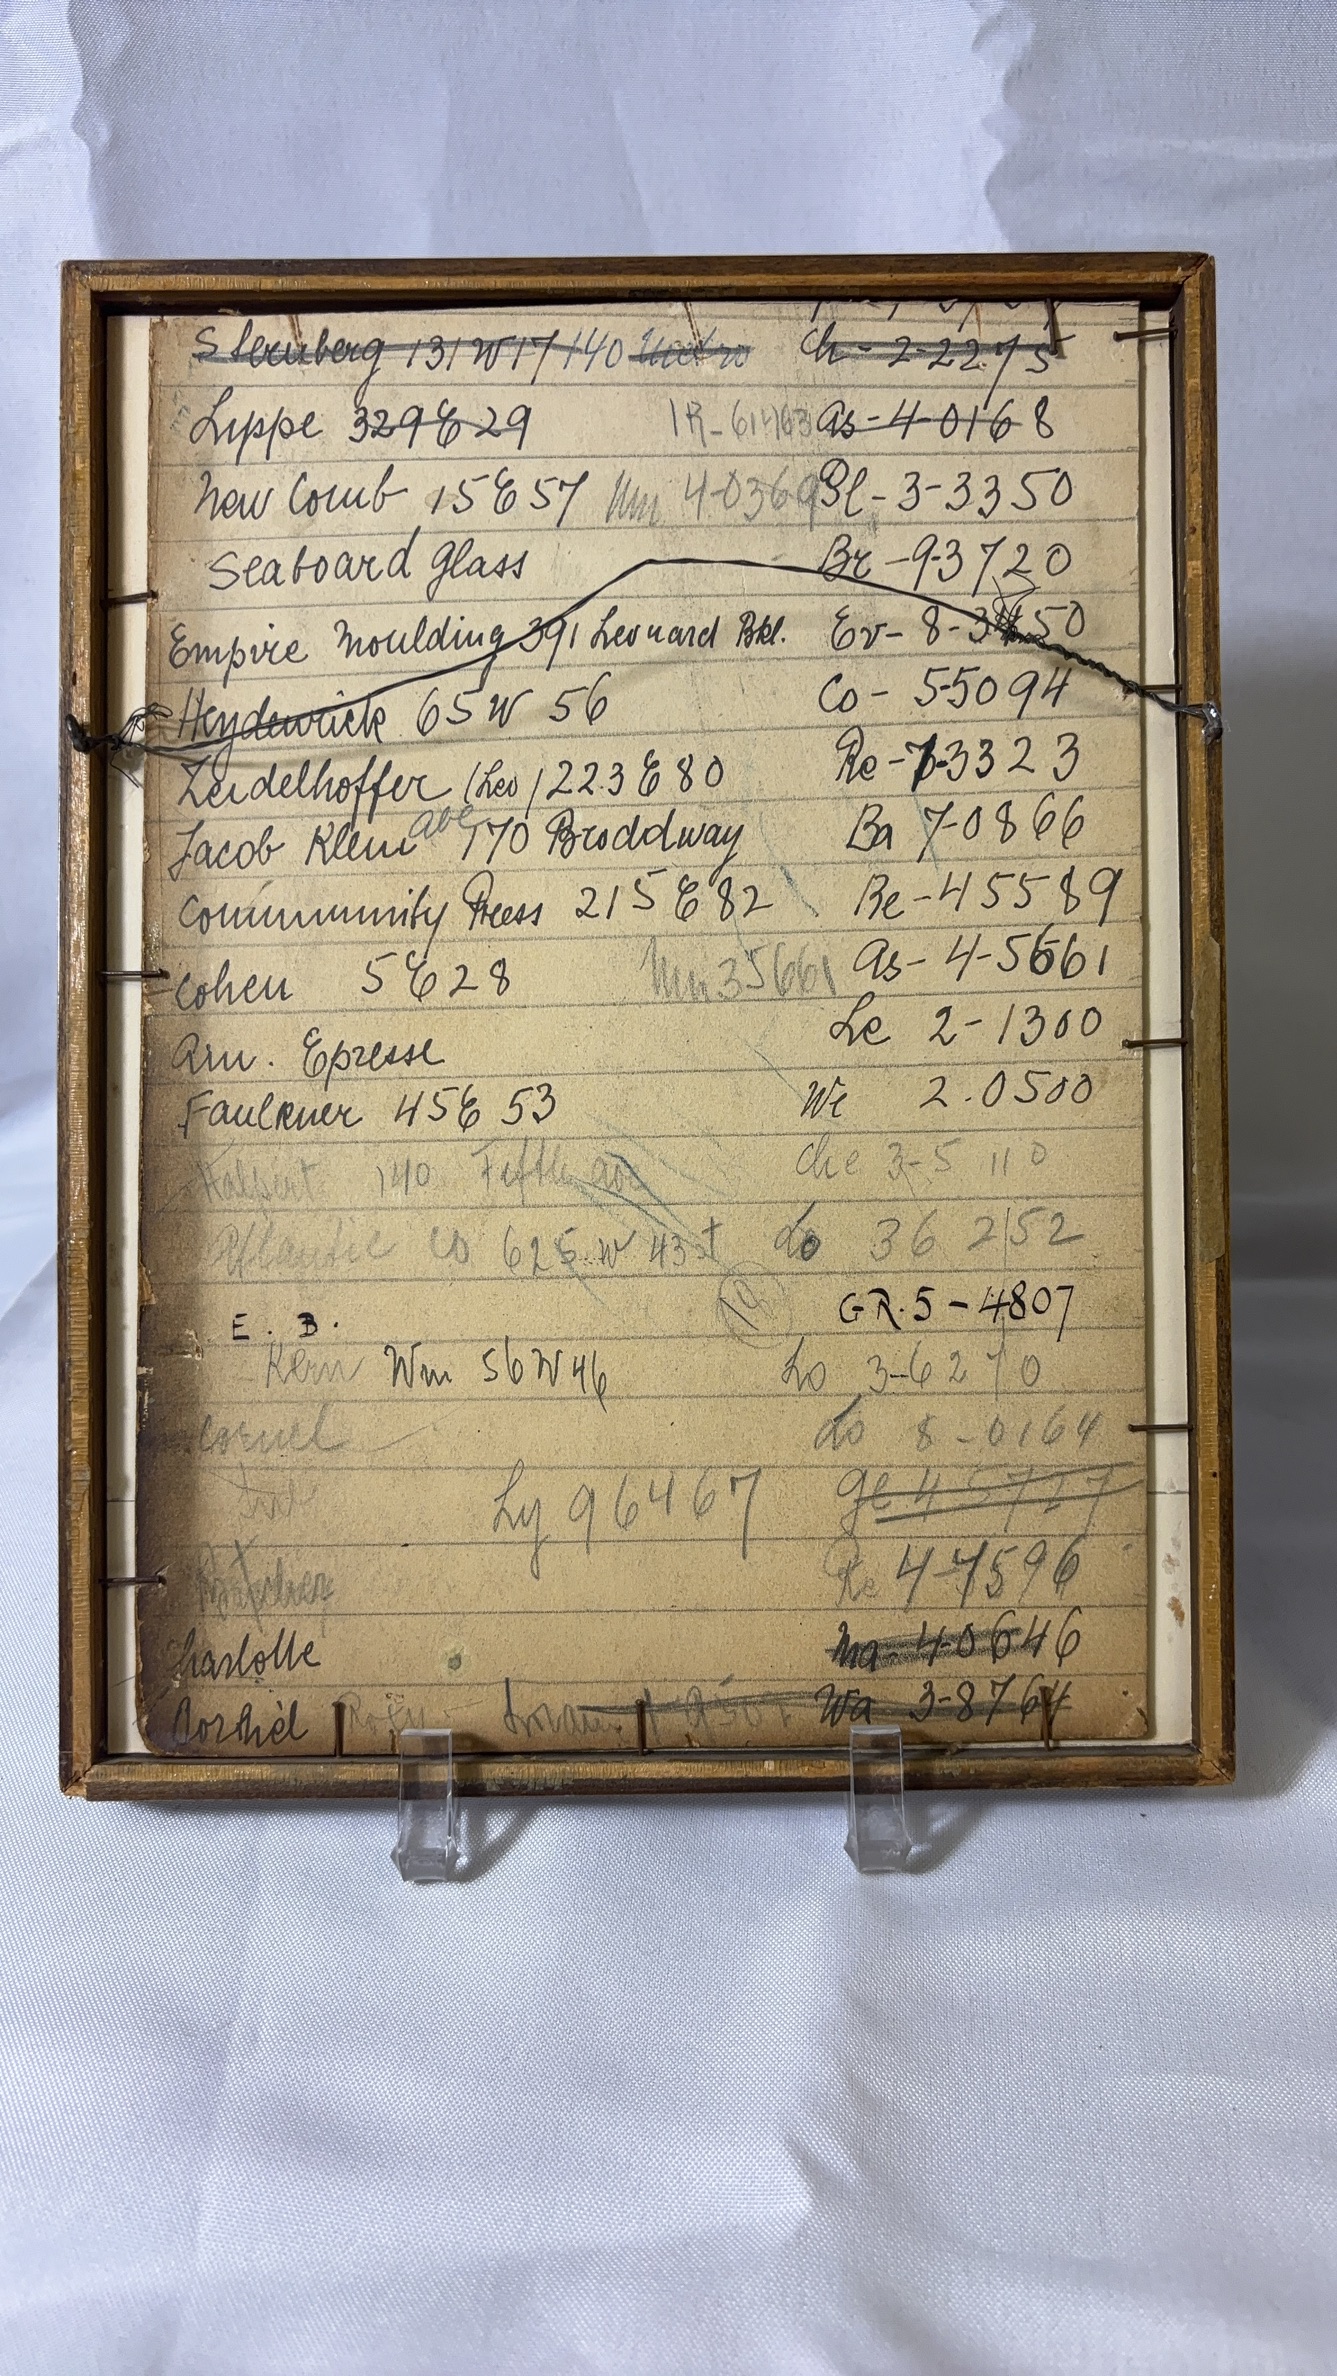 Sternberg 131 W 17 140 Ch - 2-2275
Lyppe 329 E 29 IR-61463 as-4-0168
New Comb 15 E 57 Mu 4-0369 Pl-3-3350
Seaboard Glass Br-9-3720
Empire Moulding 391 Leonard Bkl. Ev-8-3 50
Heydenrick 65 W 56 Co-5-5094
Zeidelhoffer (Leo) 223 E 80 Re-7-3323
Jacob Klein abe 170 Broddway Ba 7-0866
Community Press 215 E 82 Re-45589
Cohen 5 E 28 Mu 35661 as-4-5661
Am. Epresse Le 2-1300
Faulkner 45 E 53 We 2.0500
Halpert 140 Fifth ave Che 3-5110
Atlantic Co 625 W 43 st Lo 36 2152
18
E. B. GR.5-4807
Kern Wm 56 W 46 Lo 3-6270
Cornel Lo 8-0164
Ly 96467 ge 45727
Re 4-4596
harlotte Ma-40646
Wa 3-8764